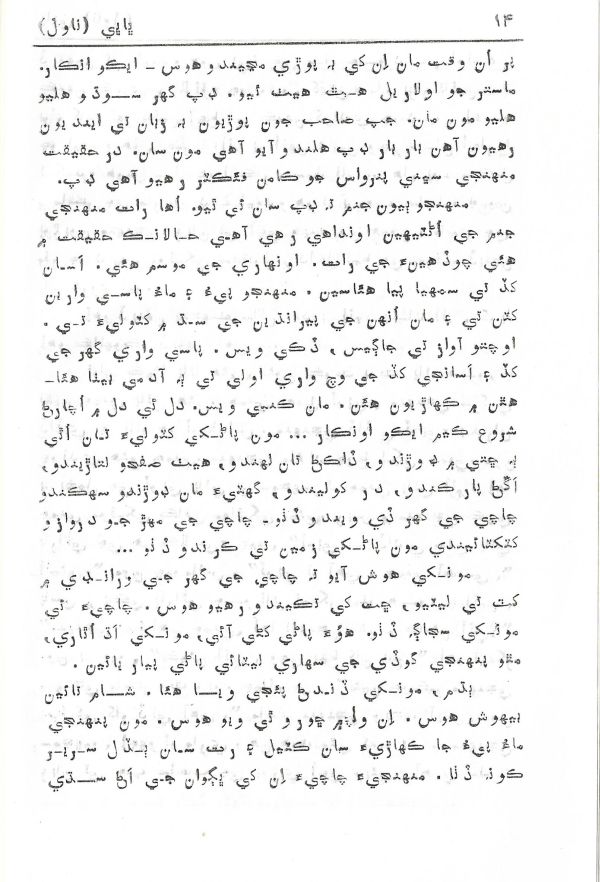 ۱۴ ڀاڀي (ناول)
پر اُن وقت مان اِن کي بہ پوڙي مڃيندو هوس – ايڪو انڪار.
ماسٽر جو اولاريل هٿ هيٺ ٿيو. ڊپ گهر سوڌو هليو
هليو مون مان. جپ صاحب جون پوڙيون بہ زبان تي اينديون
رهيون آهن پر ڊپ هلندو آيو آهي مون سان. درحقيقت
منهنجي سڀني پنرواس جو ڪامن فئڪٽر رهيو آهي ڊپ.
منهنجو ٻيون جنم تہ ڊپ سان ئي ٿيو. اُها رات منهنجي
جنم جي اُڻٽيهين اونداهي رهي آهي حالانڪ حقيقت ۾
هئي چوڏهينءَ جي رات. اونهاري جي موسم هئي. اَسان
کڏ تي سمهيا پيا هئاسين. منهنجو پيءُ ۽ ماءُ پاسي وارين
کٽن تي ۽ مان اُنهن جي پيرانڌين جي سڌ ۾ کٽوليءَ تي.
اوچتو آواز تي جاڳيس، ڏڪي ويس. پاسي واري گهر جي
کڏ ۽ اَسانجي کڏ جي وچ واري اولي تي ٻہ آدمي بيٺا هئا–
هٿن ۾ ڪهاڙيون هئن. مان ڪنبي ويس. دل ئي دل ۾ اُچارڻ
شروع ڪيم ايڪو اونڪار ... مون پاڻکي کٽوليءَ تان اُٿي
بہ ڇتي ۾ ڊوڙندو، ڏاڪڻ تان لهندو، هيٺ صفحو لتاڙيندو،
اڱڻ پار ڪندو، در کوليندو، گهٽيءَ مان ڊوڙندو سهڪندو
چاچي جي گهر ڏي ويندو ڏٺو – چاچي جي مهڙ جو دروازو
کٽکٽائيندي مون پاڻکي زمين تي ڪرندو ڏٺو ...
مونکي هوش آيو تہ چاچي جي گهر جي ورانڊي ۾
کٽ تي ليٽيو، ڇت کي تڪيندو رهيو هوس. چاچيءَ ئي
مونکي سجاڳ ڏٺو. هوءَ پاڻي کڻي آئي، مونکي اَڌ اُٿاري،
مٿو پنهنجي گوڏي جي سهاري ليٽائي پاڻي پيار يائين.
پڌم، مونکي ڏندڻ پئجي ويا هئا. شام تائين
بيهوش هوس. اِن وچ ۾ چورو ٿي ويو هوس. مون پنهنجي
ماءُ پيءُ جا ڪهاڙيءَ سان ڪٽيل ۽ رت سان ٻڏل سرير
ڪونہ ڏٺا. منهنجيءَ چاچيءَ اِن کي ڀڳوان جي اڻ سڌي